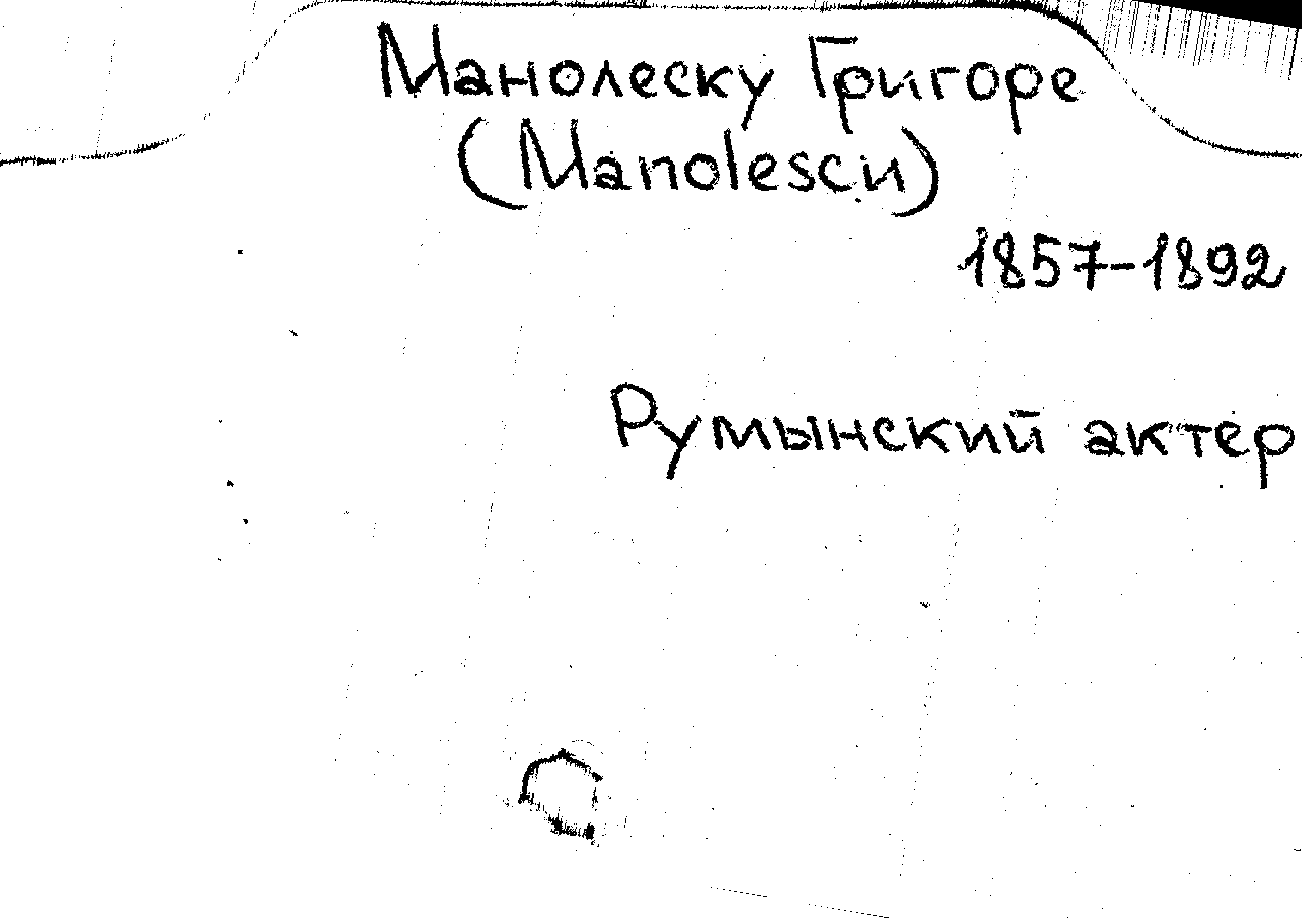 Манолеску Григоре
(Manolescu)
1857-1892
Румынский актер